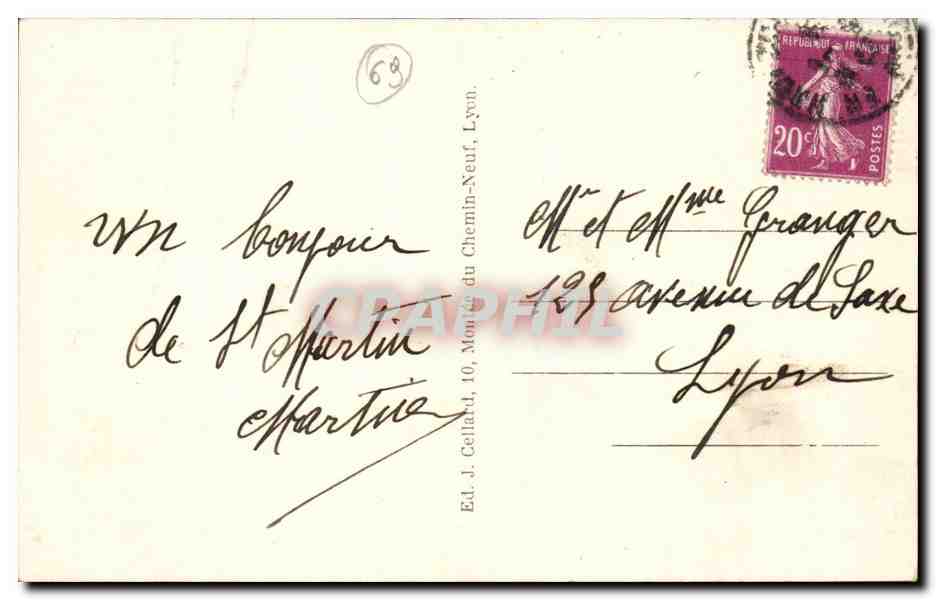 69
un bonjour
de St Martin
Ed. J. Cellard, 10, Montée du Chemin-Neuf, Lyon.
REPUBLIQUE FRANÇAISE
20c
POSTES
Mr et Mme Granger
avenue de Saxe
Lyon
CPAPHIL